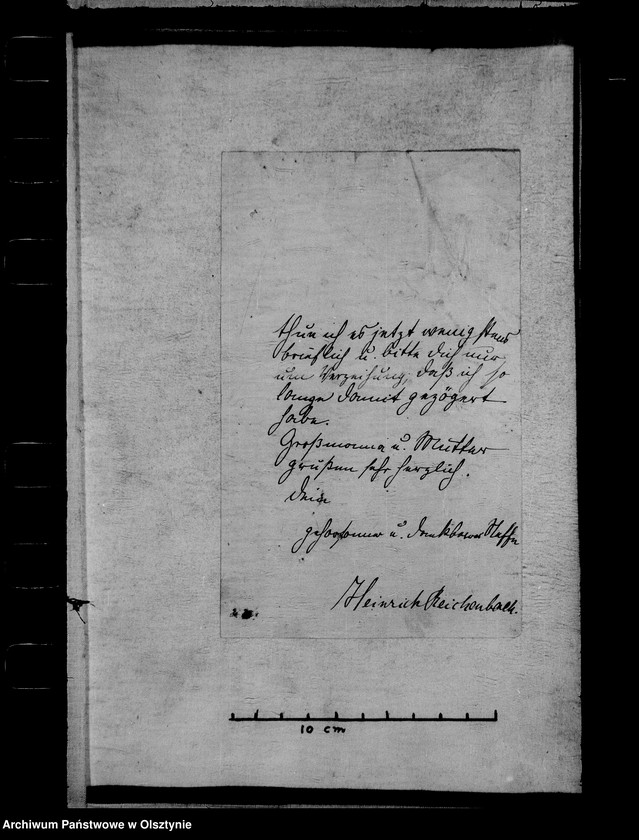 thue ich es jetzt wenigstens
brieflich u. bitte Dich nur
um Verzeihung, daß ich so
lange damit gezögert
habe.
Großmama u. Mutter
grüßen sehr herzlich.
Dein
gehorsamer u. dankbarer Neffe
Heinrich Reichenbach.
10 cm
Archiwum Państwowe w Olsztynie